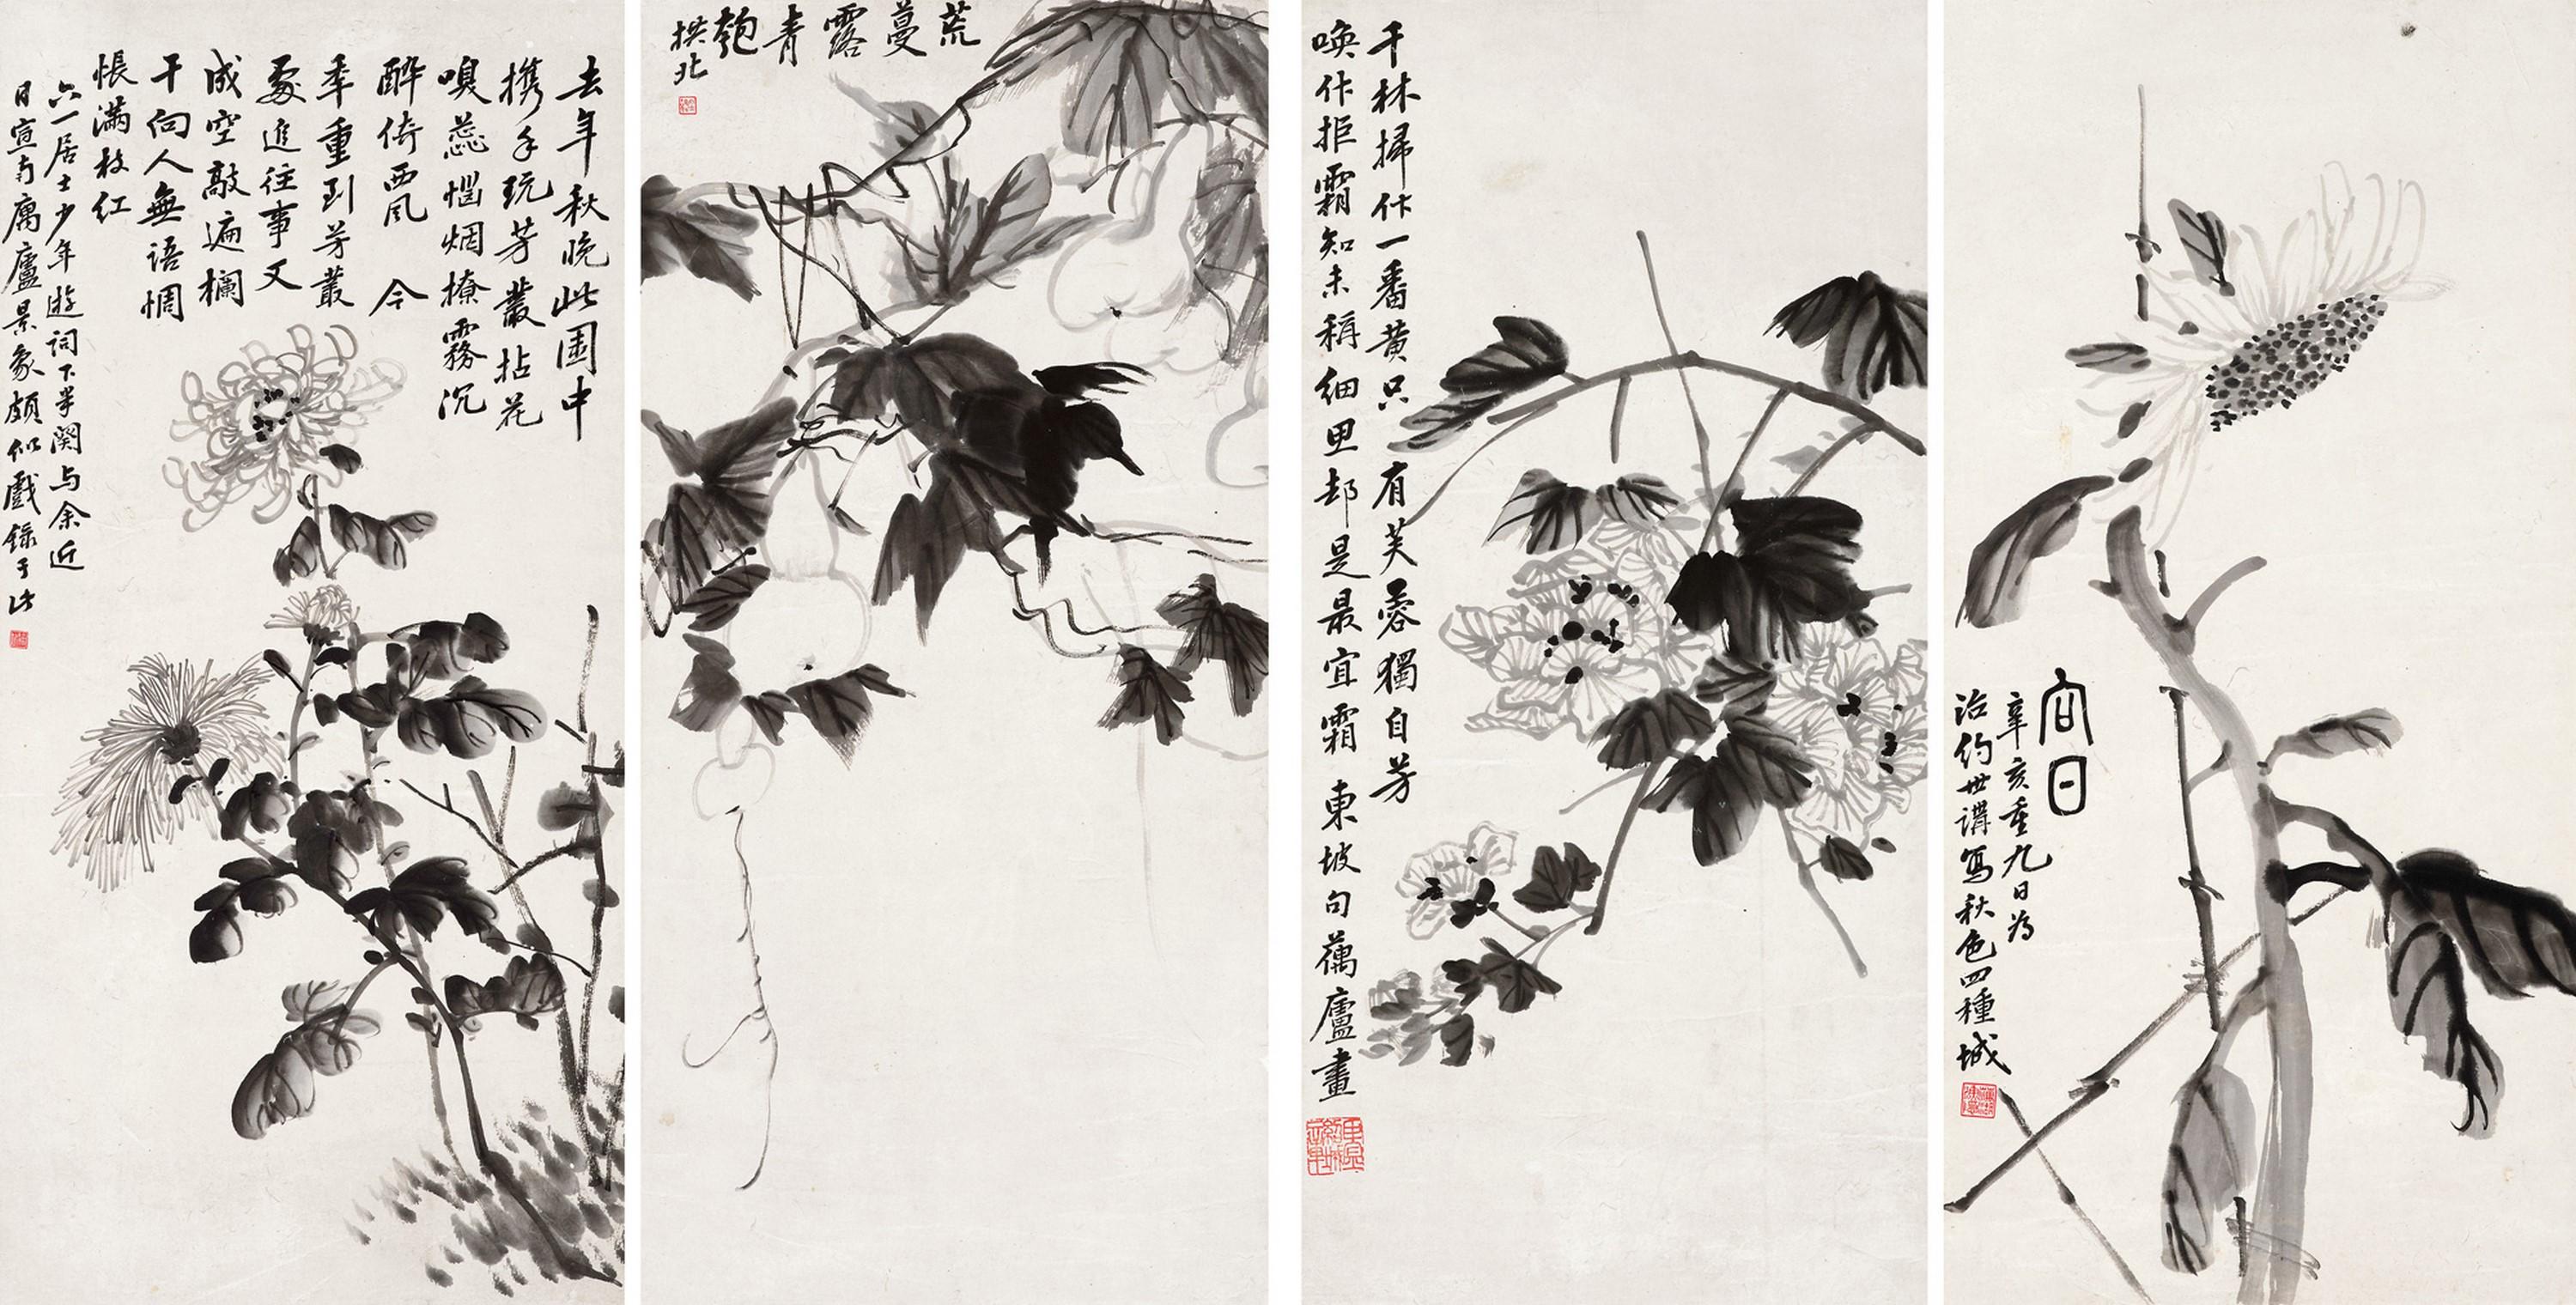 向日
辛亥重九日为
治約世講寫秋色四種 城
千林掃作一番黃只有芙蓉獨自芳
喚作拒霜知未稱細思却是最宜霜 東坡句 藕廬畫
荒蔓露青匏
拱北
去年秋晚此園中
携手玩芳叢拈花
嗅蕊惱烟撩霧沉
醉倚西风 今
年重到芳叢
處追往事又
成空敲遍欄
干向人無語惆
悵滿枝红
六一居士少年遊詞下半闋与余近
日宣南寓廬景象頗似戲錄于此